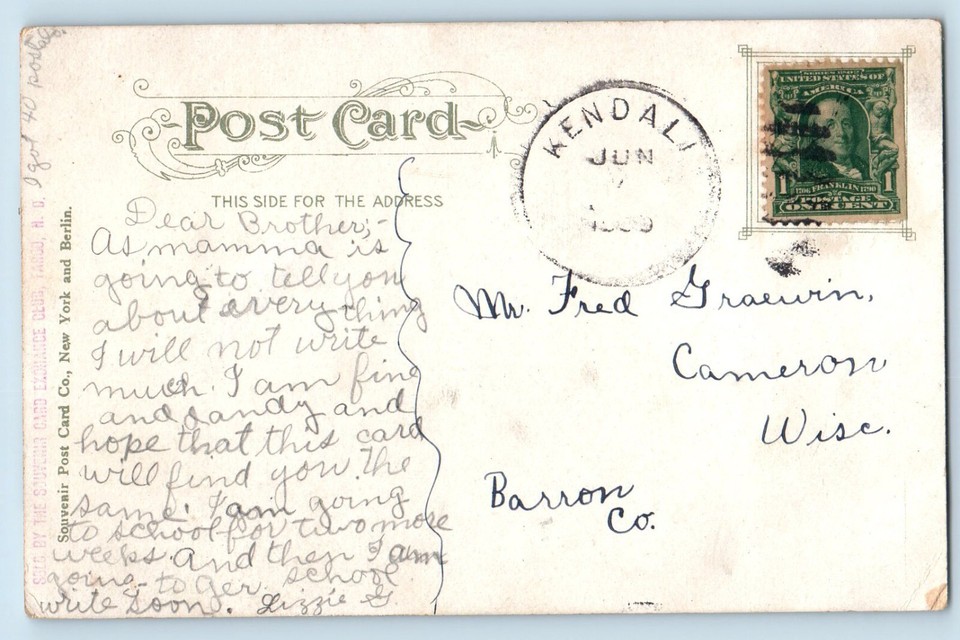 Post Card
THIS SIDE FOR THE ADDRESS
KENDALL
JUN
SERIES 1902
UNITED STATES OF
AMERICA
1 1706 FRANKLIN 1790 1
POSTAGE
ONE CENT
Dear Brother;-
As mamma is
going to tell you
about every thing
I will not write
much. I am fine
and dandy and
hope that this card
will find you the
same. I am going
to school for two more
weeks. And then I am
going to Ger. school
write soon. Lizzie G.
Mr. Fred Graewin,
Cameron
Wisc.
Barron
Co.
I got 40 postals.
SOLD BY THE SOUVENIR CARD EXCHANGE CLUB, FARGO, N. D.
Souvenir Post Card Co., New York and Berlin.